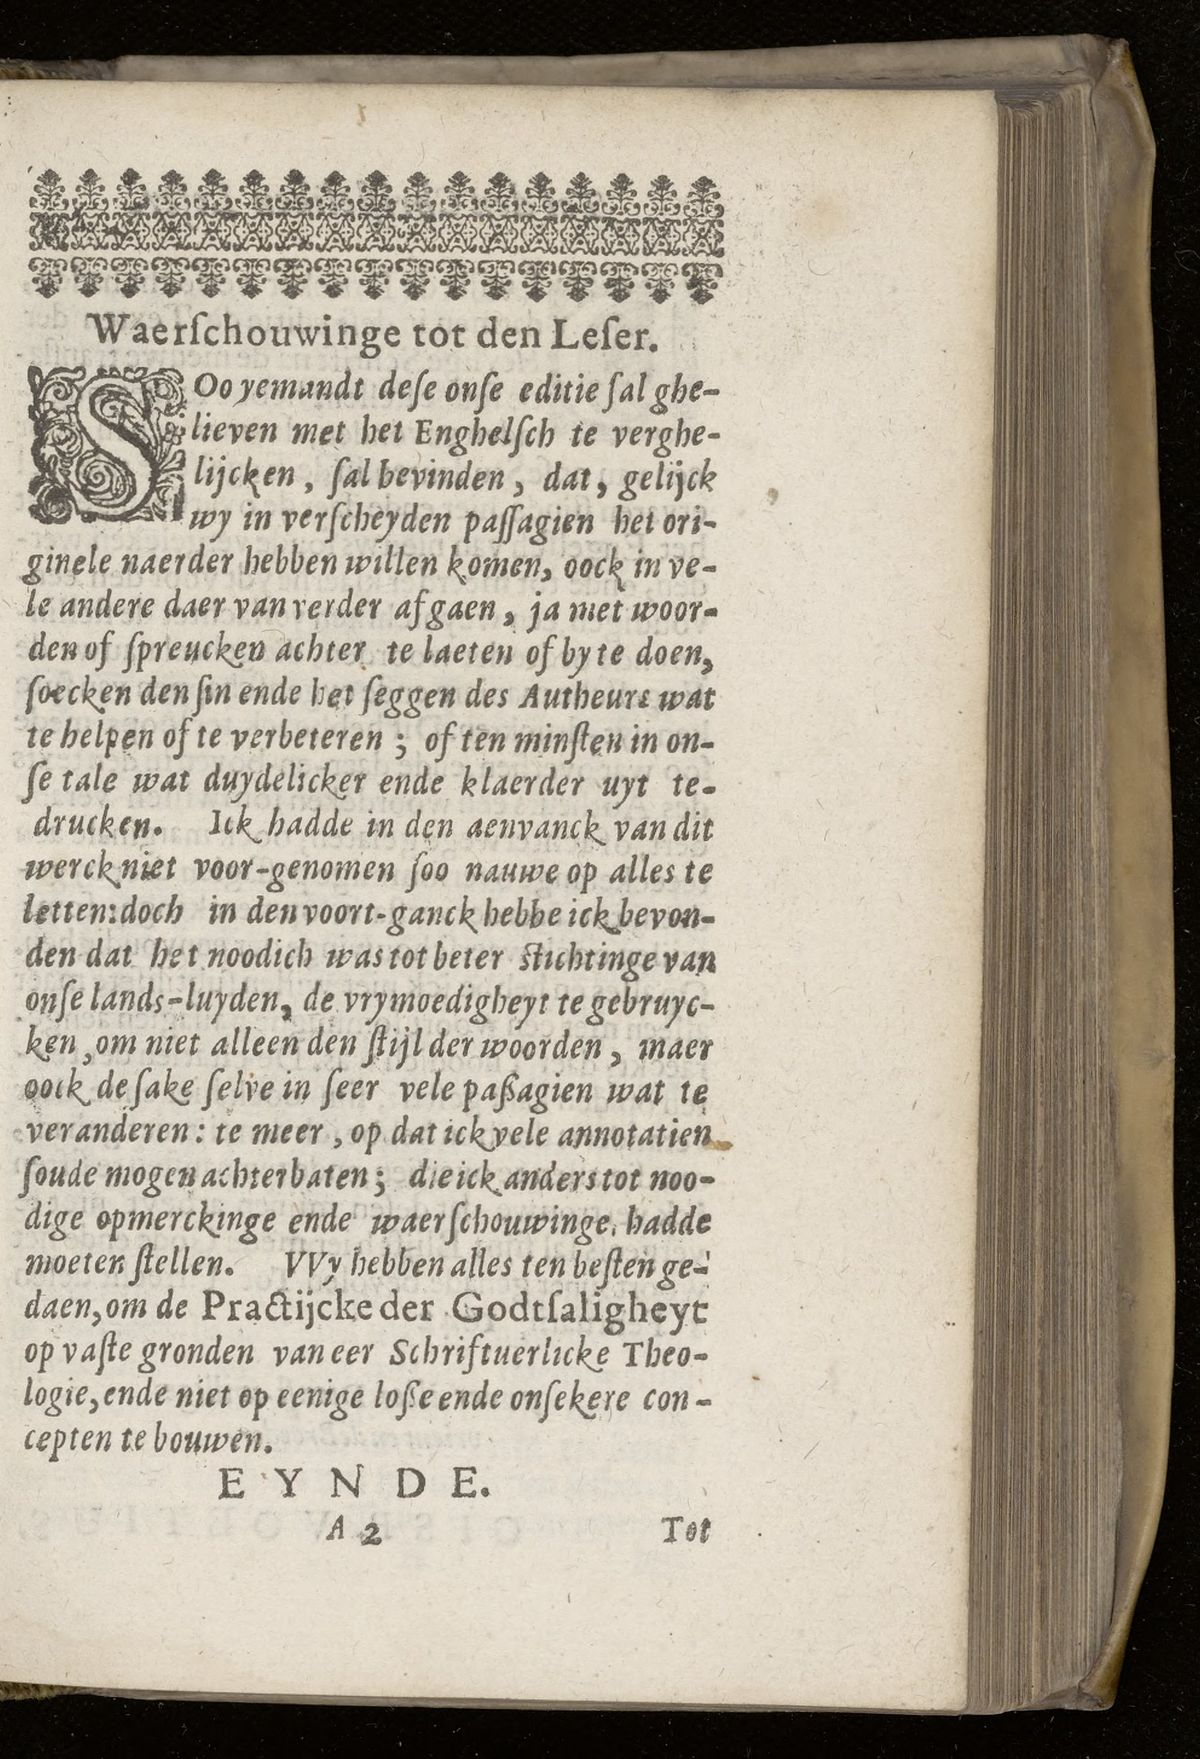 Waerſchouwinge tot den Leſer.
SOo yemandt deſe onſe editie ſal ghe-
lieven met het Enghelſch te verghe-
lijcken, ſal bevinden, dat, gelijck
wy in verſcheyden paſſagien het ori-
ginele naerder hebben willen komen, oock in ve-
le andere daer van verder afgaen, ja met woor-
den of ſpreucken achter te laeten of by te doen,
ſoecken den ſin ende het ſeggen des Autheurs wat
te helpen of te verbeteren; of ten minſten in on-
ſe tale wat duydelicker ende klaerder uyt te-
drucken. Ick hadde in den aenvanck van dit
werck niet voor-genomen ſoo nauwe op alles te
letten: doch in den voort-ganck hebbe ick bevon-
den dat het noodich was tot beter ſtichtinge van
onſe lands-luyden, de vrymoedigheyt te gebruyc-
ken, om niet alleen den ſtijl der woorden, maer
oock de ſake ſelve in ſeer vele paßagien wat te
veranderen: te meer, op dat ick vele annotatien
ſoude mogen achterbaten; die ick anders tot noo-
dige opmerckinge ende waerſchouwinge, hadde
moeten ſtellen. VVy hebben alles ten beſten ge-
daen, om de Practijcke der Godtſaligheyt
op vaſte gronden van eer Schriftuerlicke Theo-
logie, ende niet op eenige loße ende onſekere con-
cepten te bouwen.
EYNDE.
A 2 Tot